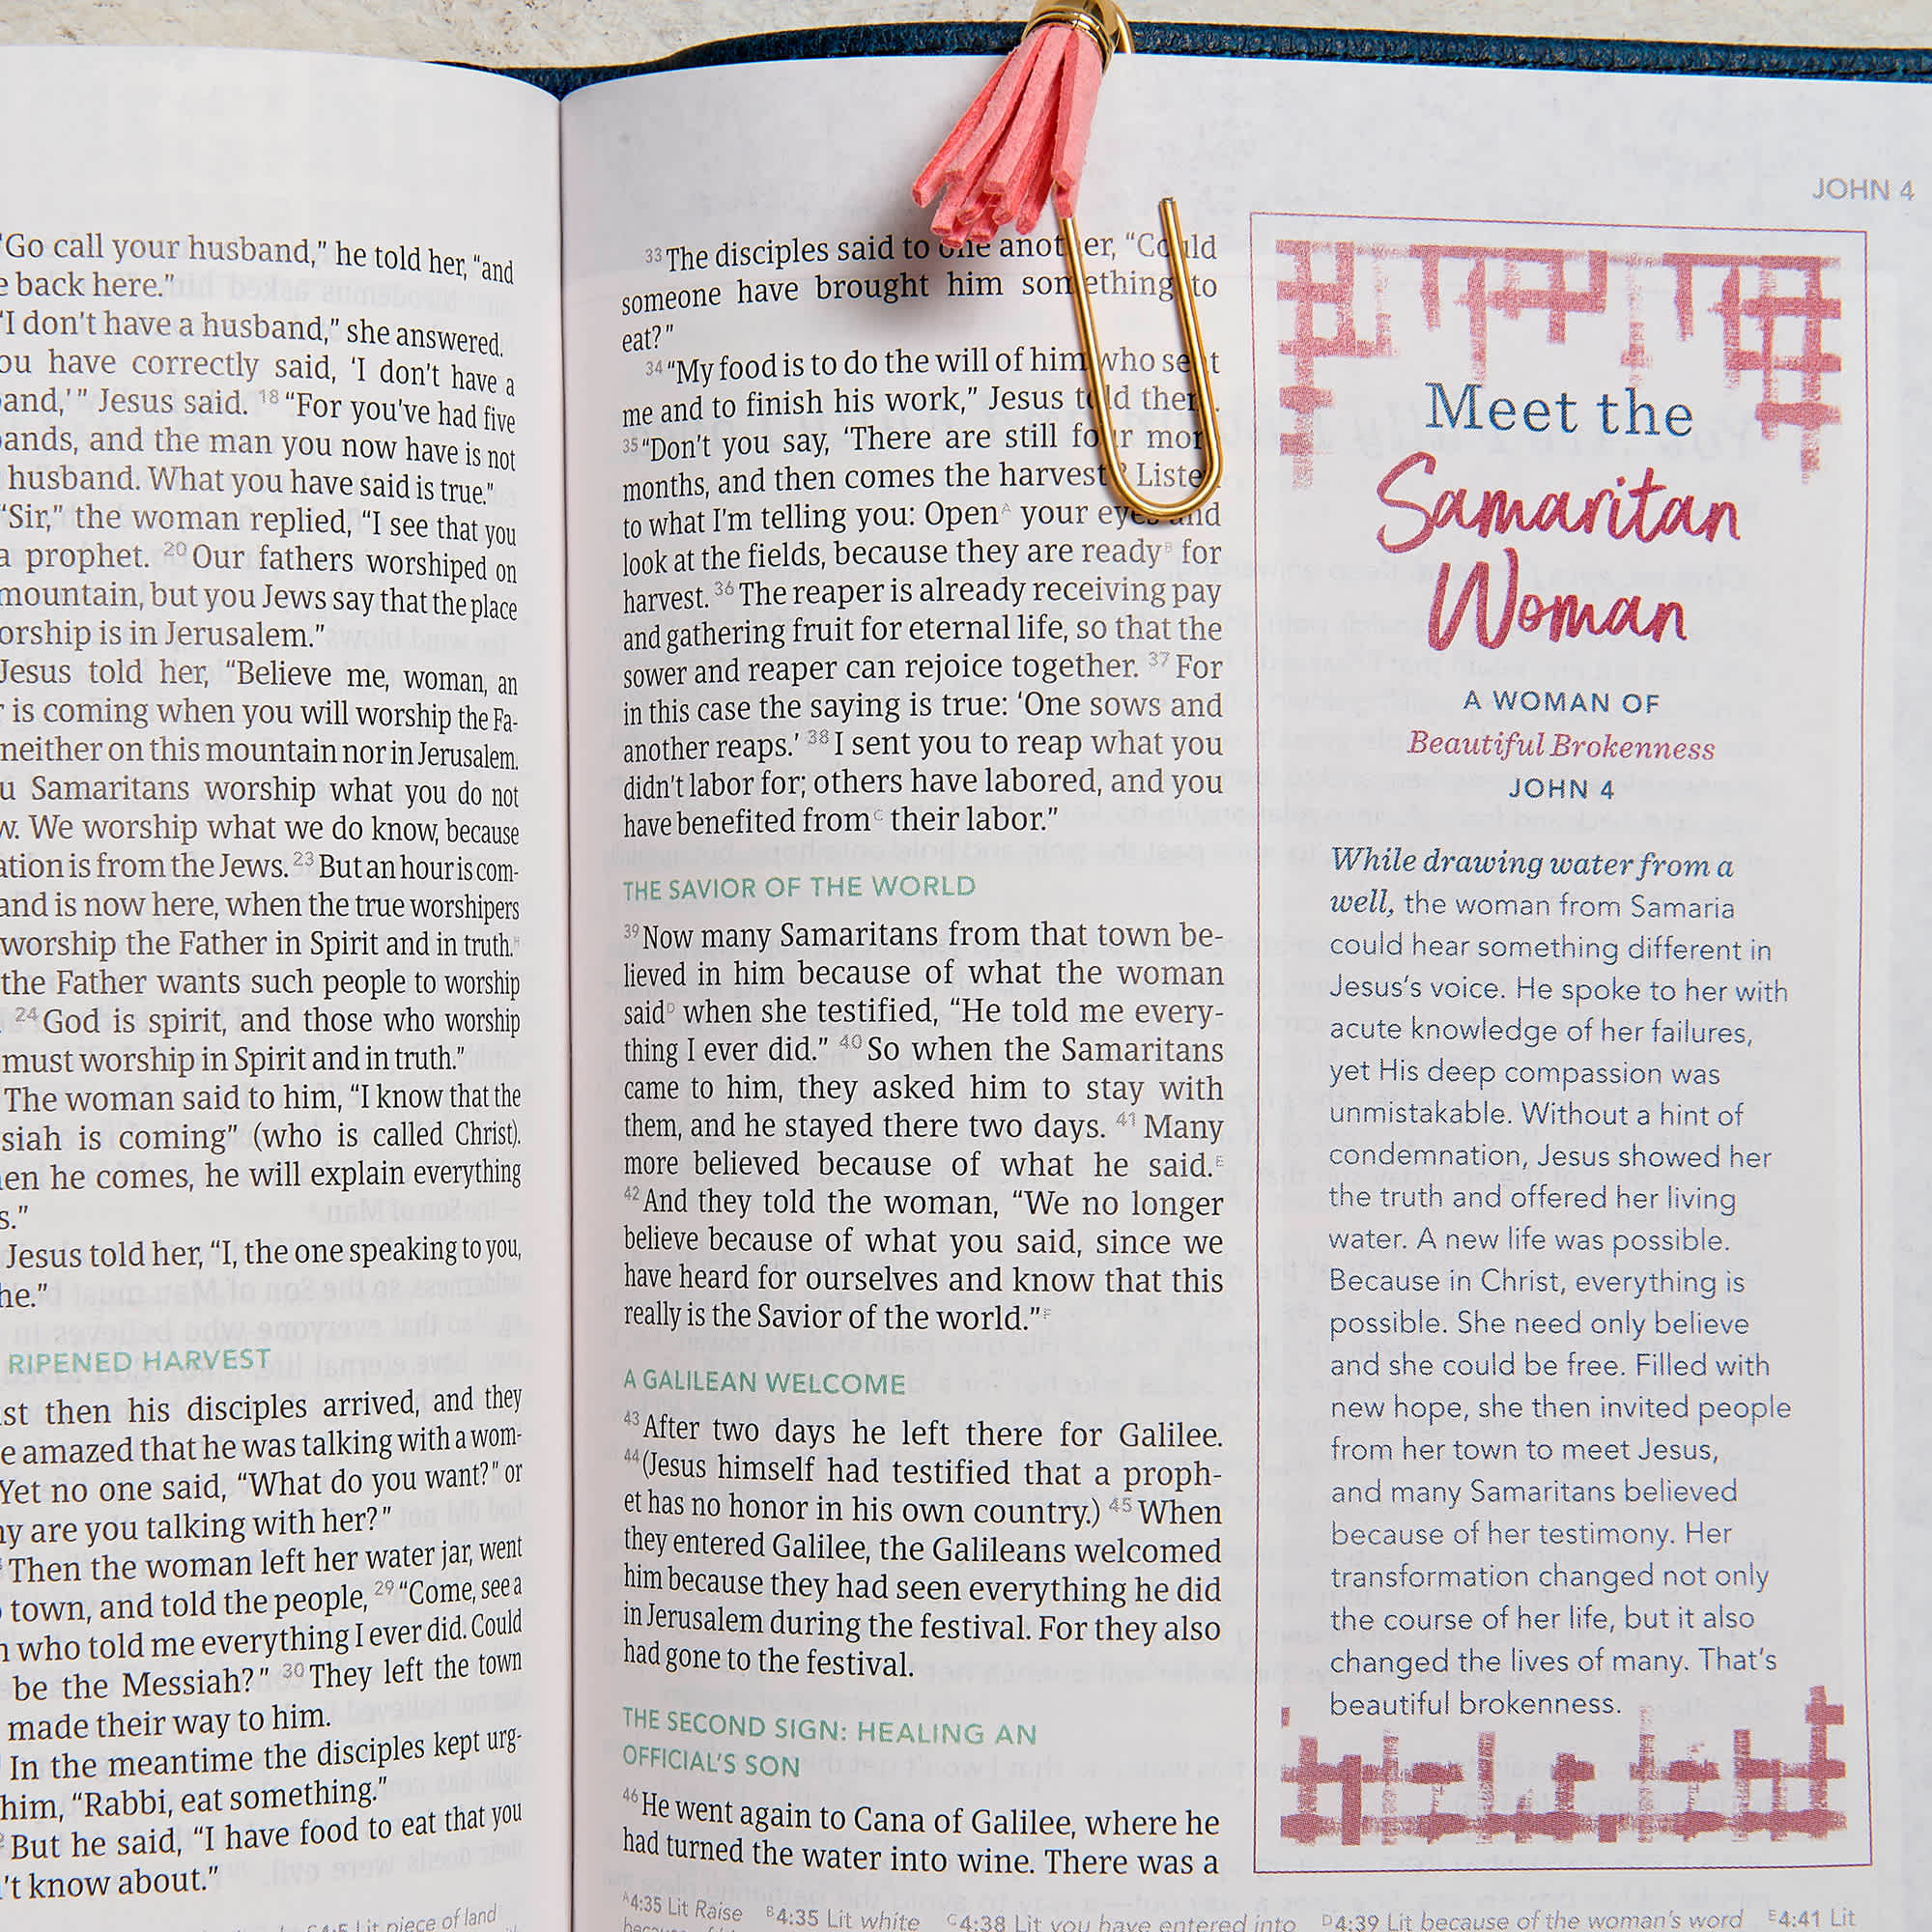 “Go call your husband,” he told her, “and
back here.”
“I don't have a husband,” she answered.
have correctly said, ‘I don't have a
Jesus said. 18 “For you've had five
and the man you now have is not
husband. What you have said is true.”
“Sir,” the woman replied, “I see that you
a prophet. 20 Our fathers worshiped on
mountain, but you Jews say that the place
is in Jerusalem.”
Jesus told her, “Believe me, woman, an
is coming when you will worship the Fa-
neither on this mountain nor in Jerusalem.
Samaritans worship what you do not
We worship what we do know, because
is from the Jews. 23 But an hour is com-
and is now here, when the true worshipers
worship the Father in Spirit and in truth.H
the Father wants such people to worship
24 God is spirit, and those who worship
must worship in Spirit and in truth.”
The woman said to him, “I know that the
is coming” (who is called Christ).
he comes, he will explain everything
Jesus told her, “I, the one speaking to you,
he.”
RIPENED HARVEST
then his disciples arrived, and they
amazed that he was talking with a wom-
Yet no one said, “What do you want?” or
are you talking with her?”
Then the woman left her water jar, went
town, and told the people, 29 “Come, see a
who told me everything I ever did. Could
be the Messiah?” 30 They left the town
made their way to him.
In the meantime the disciples kept urg-
him, “Rabbi, eat something.”
But he said, “I have food to eat that you
know about.”
Lit piece of land
JOHN 4
33 The disciples said to one another, “Could
someone have brought him something to
eat?”
34 “My food is to do the will of him who sent
me and to finish his work,” Jesus told them.
35 “Don't you say, ‘There are still four more
months, and then comes the harvest’? Listen
to what I'm telling you: OpenA your eyes and
look at the fields, because they are readyB for
harvest. 36 The reaper is already receiving pay
and gathering fruit for eternal life, so that the
sower and reaper can rejoice together. 37 For
in this case the saying is true: ‘One sows and
another reaps.’ 38 I sent you to reap what you
didn't labor for; others have labored, and you
have benefited fromC their labor.”
THE SAVIOR OF THE WORLD
39 Now many Samaritans from that town be-
lieved in him because of what the woman
saidD when she testified, “He told me every-
thing I ever did.” 40 So when the Samaritans
came to him, they asked him to stay with
them, and he stayed there two days. 41 Many
more believed because of what he said.E
42 And they told the woman, “We no longer
believe because of what you said, since we
have heard for ourselves and know that this
really is the Savior of the world.”F
A GALILEAN WELCOME
43 After two days he left there for Galilee.
44 (Jesus himself had testified that a proph-
et has no honor in his own country.) 45 When
they entered Galilee, the Galileans welcomed
him because they had seen everything he did
in Jerusalem during the festival. For they also
had gone to the festival.
THE SECOND SIGN: HEALING AN
OFFICIAL'S SON
46 He went again to Cana of Galilee, where he
had turned the water into wine. There was a
A 4:35 Lit Raise B 4:35 Lit white C 4:38 Lit you have entered into D 4:39 Lit because of the woman's word E 4:41 Lit
Meet the
Samaritan
Woman
A WOMAN OF
Beautiful Brokenness
JOHN 4
While drawing water from a
well, the woman from Samaria
could hear something different in
Jesus's voice. He spoke to her with
acute knowledge of her failures,
yet His deep compassion was
unmistakable. Without a hint of
condemnation, Jesus showed her
the truth and offered her living
water. A new life was possible.
Because in Christ, everything is
possible. She need only believe
and she could be free. Filled with
new hope, she then invited people
from her town to meet Jesus,
and many Samaritans believed
because of her testimony. Her
transformation changed not only
the course of her life, but it also
changed the lives of many. That's
beautiful brokenness.